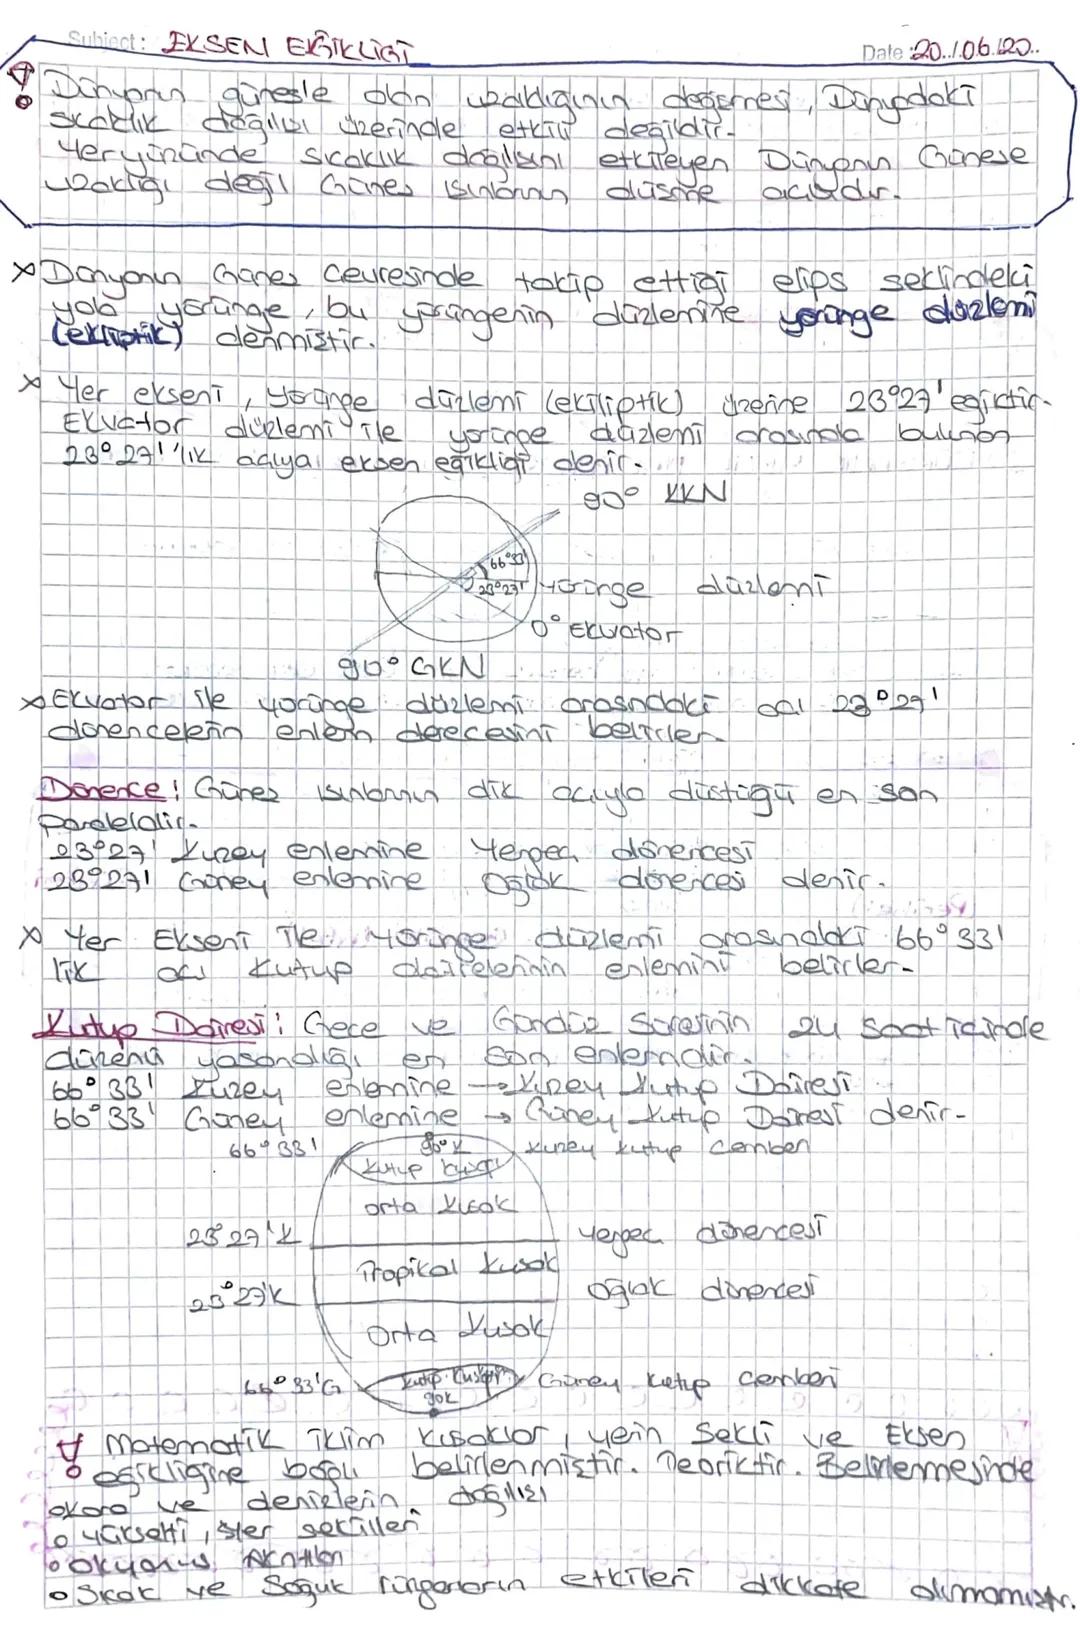 Subject: EKSEN EĞİKLİĞİ
Date: 20./06./20..
Dünyanın güneşle olan uzaklığının değişmesi, Dünyadaki
sıcaklık dağılışı üzerinde etkili değildir.
Yeryüzünde sıcaklık dağılışını etkileyen Dünyanın Güneşe
uzaklığı değil Güneş ışınlarının düşme açısıdır.
x Dünyanın Güneş çevresinde takip ettiği elips şeklindeki
yola yörünge, bu yörüngenin düzlemine yörünge düzlemi
(ekliptik) denmiştir.
x Yer ekseni, yörünge düzlemi (ekiliptik) üzerine 23°27' eğiktir.
Ekvator düzlemi ile yörünge düzlemi arasında bulunan
23°27''lık açıya eksen eğikliği denir.
90° KKN
66°33'
23°27'
yörünge düzlemi
0° Ekvator
90° GKN
x Ekvator ile yörünge düzlemi arasındaki açı 23°27'
dönencelerin enlem derecesini belirler
Dönence: Güneş ışınlarının dik açıyla düştüğü en son
paraleldir.
23°27' Kuzey enlemine Yengeç dönencesi
23°27' Güney enlemine Oğlak dönencesi denir.
x Yer Ekseni ile yörünge düzlemi arasındaki 66°33'
lik açı kutup dairelerinin enlemini belirler.
Kutup Dairesi: Gece ve Gündüz Süresinin 24 saat içinde
düzenli yaşandığı en son enlemdir.
66°33' Kuzey enlemine → Kuzey Kutup Dairesi
66°33' Güney enlemine → Güney Kutup Dairesi denir.
66°33'
90°K
Kuzey kutup çemberi
Kutup kuşağı
orta Kuşak
23°27'K
Yengeç dönencesi
Tropikal Kuşak
23°27'K
Oğlak dönencesi
Orta Kuşak
66°33'G
Kutup Kuşağı
Güney kutup çemberi
90K
Matematik iklim kuşaklar, yerin Şekli ve Eksen
eğikliğine bağlı belirlenmiştir. Teoriktir. Belirlemesinde
o kara ve denizlerin dağılışı
o yükselti, yer şekilleri
o Okyanus Akıntıları
o Sıcak ve Soğuk rüzgarların etkileri dikkate alınmamıştır.